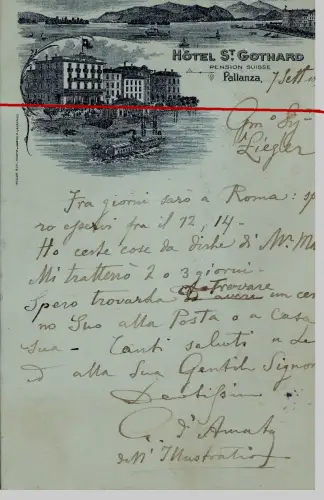 HÔTEL ST GOTHARD
PENSION SUISSE
Pallanza, 7 Sett
Gmo Sig
Ziegler
Fra giorni sarò a Roma: sp
ro esservi fra il 12, 14-
Ho certe cose da dirle di Mr. Ma
Mi tratteno 2 o 3 giorni-
Spero trovarla trovare un cen
no Suo alla Posta o a Casa
Sua - Tanti saluti a Le
ed alla Sua Gentil Signor
G. d'Amato
dell'Illustration